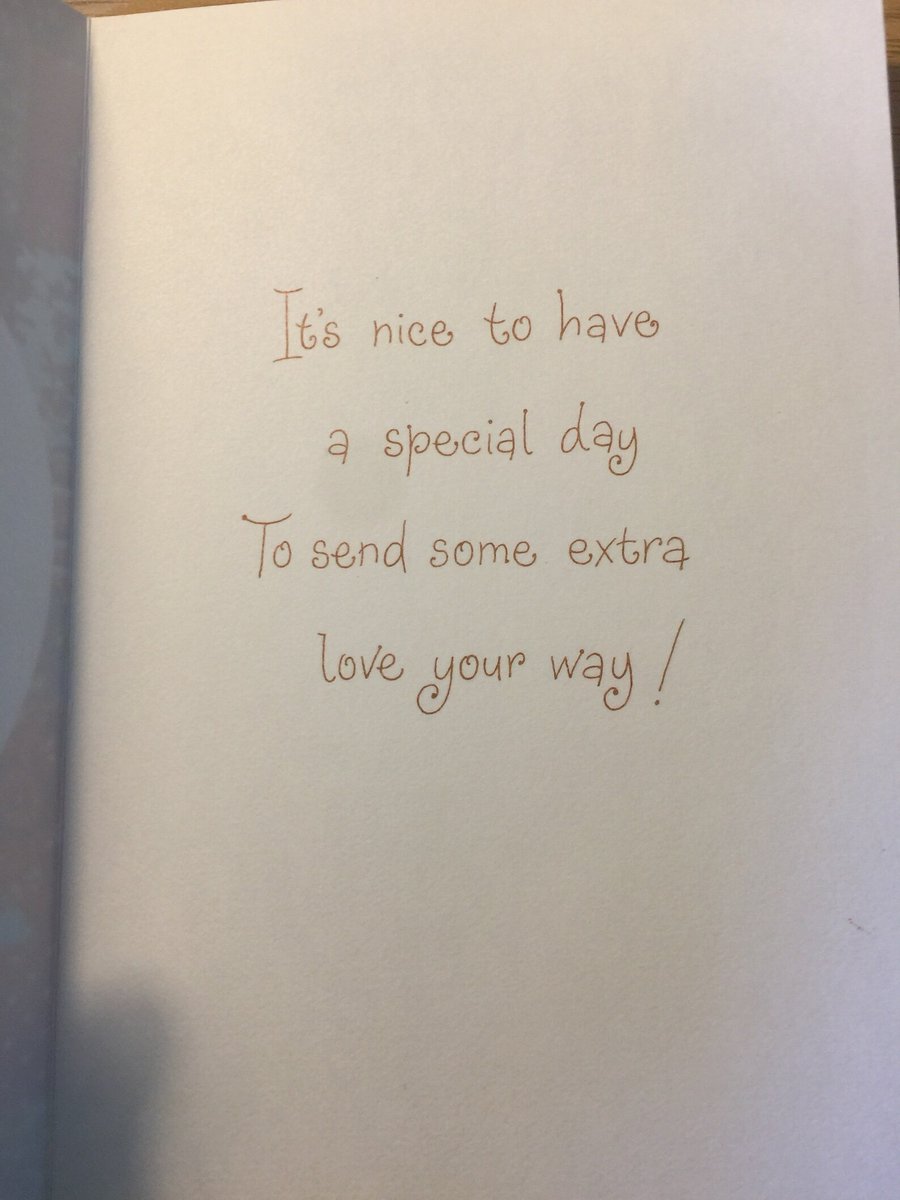 It's nice to have
a special day
To send some extra
love your way!